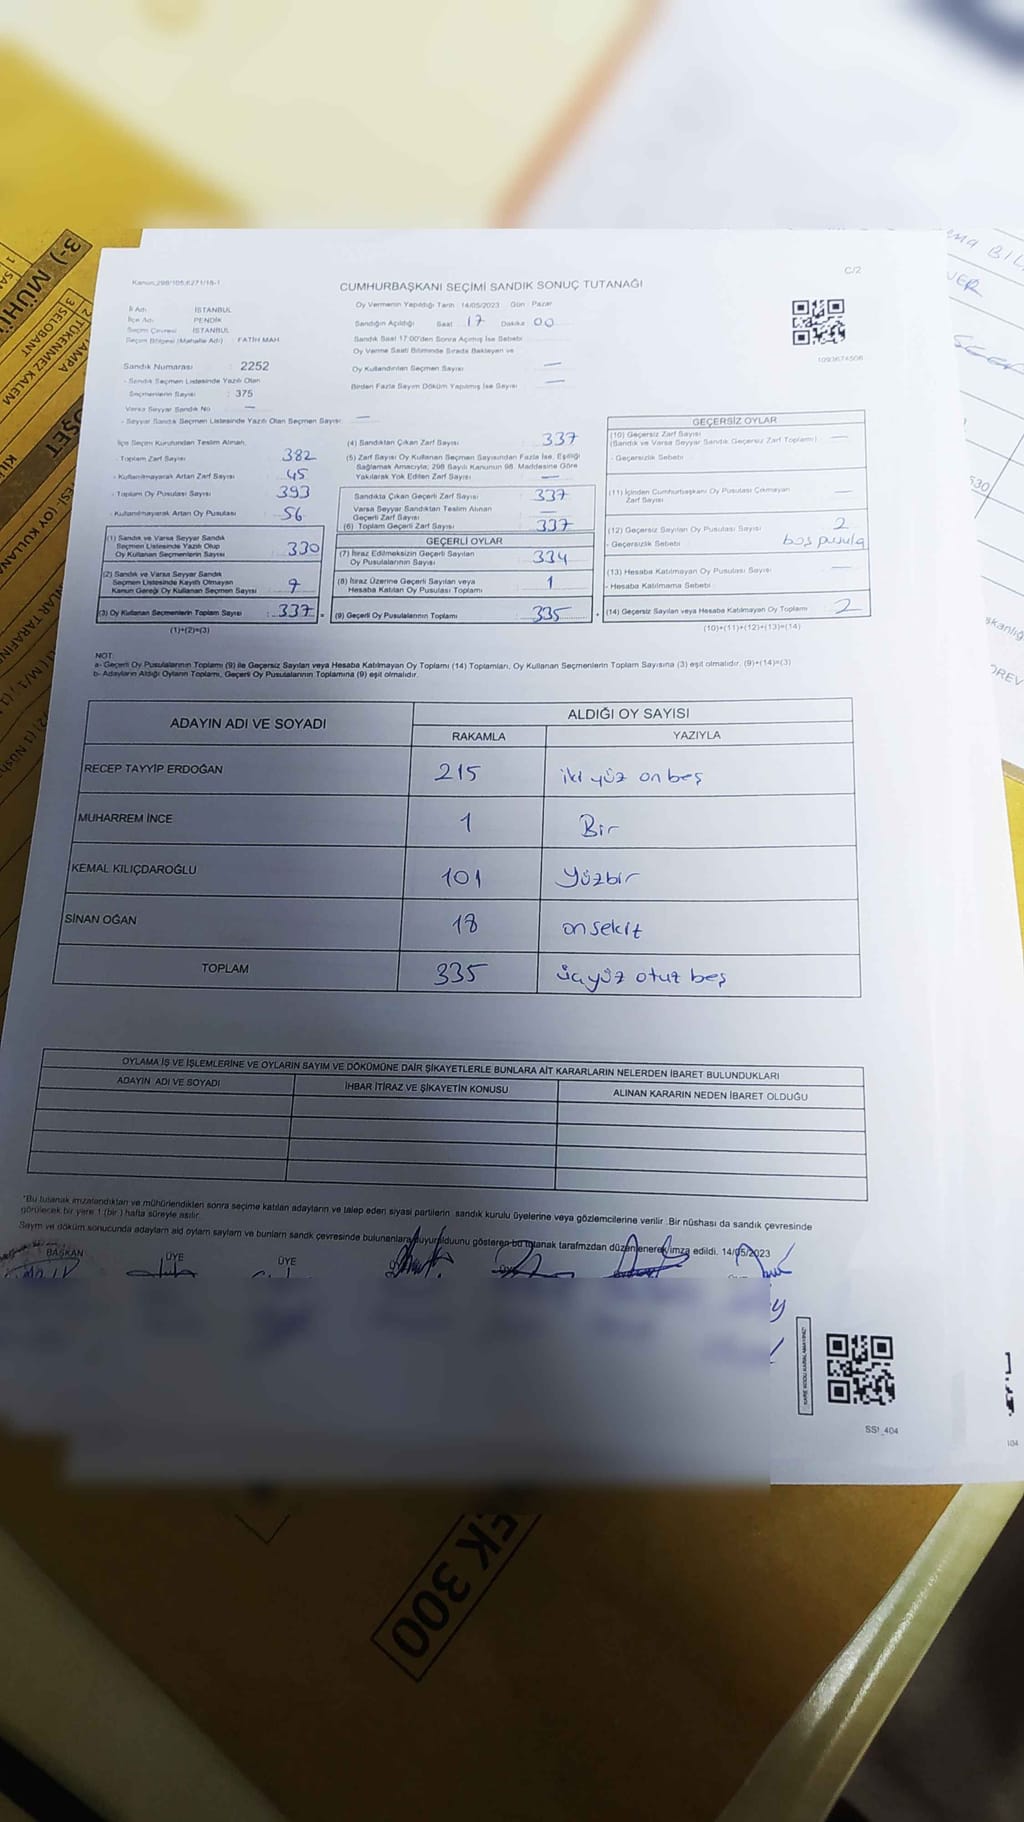 C/2
Kanun:298/105,6271/18-1
CUMHURBAŞKANI SEÇİMİ SANDIK SONUÇ TUTANAĞI
İl Adı : İSTANBUL
İlçe Adı : PENDİK
Seçim Çevresi : İSTANBUL
Seçim Bölgesi (Mahalle Adı) : FATİH MAH
Sandık Numarası : 2252
- Sandık Seçmen Listesinde Yazılı Olan
Seçmenlerin Sayısı : 375
Varsa Seyyar Sandık No —
- Seyyar Sandık Seçmen Listesinde Yazılı Olan Seçmen Sayısı: —
Oy Vermenin Yapıldığı Tarih : 14/05/2023 Gün : Pazar
Sandığın Açıldığı Saat : 17 Dakika 00
Sandık Saat 17:00'den Sonra Açılmış İse Sebebi
Oy Verme Saati Bitiminde Sırada Bekleyen ve
Oy Kullandırılan Seçmen Sayısı —
Birden Fazla Sayım Döküm Yapılmış İse Sayısı —
1093674506
İlçe Seçim Kurulundan Teslim Alınan,
- Toplam Zarf Sayısı 382
- Kullanılmayarak Artan Zarf Sayısı 45
- Toplam Oy Pusulası Sayısı 393
- Kullanılmayarak Artan Oy Pusulası 56
(1) Sandık ve Varsa Seyyar Sandık
Seçmen Listesinde Yazılı Olup
Oy Kullanan Seçmenlerin Sayısı 330
(2) Sandık ve Varsa Seyyar Sandık
Seçmen Listesinde Kayıtlı Olmayan
Kanun Gereği Oy Kullanan Seçmen Sayısı 7
(3) Oy Kullanan Seçmenlerin Toplam Sayısı 337 =
(1)+(2)=(3)
(4) Sandıktan Çıkan Zarf Sayısı 337
(5) Zarf Sayısı Oy Kullanan Seçmen Sayısından Fazla İse, Eşitliği
Sağlamak Amacıyla; 298 Sayılı Kanunun 98. Maddesine Göre
Yakılarak Yok Edilen Zarf Sayısı —
Sandıkta Çıkan Geçerli Zarf Sayısı 337
Varsa Seyyar Sandıktan Teslim Alınan
Geçerli Zarf Sayısı —
(6) Toplam Geçerli Zarf Sayısı 337
GEÇERLİ OYLAR
(7) İtiraz Edilmeksizin Geçerli Sayılan
Oy Pusulalarının Sayısı 334
(8) İtiraz Üzerine Geçerli Sayılan veya
Hesaba Katılan Oy Pusulası Toplamı 1
(9) Geçerli Oy Pusulalarının Toplamı 335 +
GEÇERSİZ OYLAR
(10) Geçersiz Zarf Sayısı
(Sandık ve Varsa Seyyar Sandık Geçersiz Zarf Toplamı) —
- Geçersizlik Sebebi
(11) İçinden Cumhurbaşkanı Oy Pusulası Çıkmayan
Zarf Sayısı —
(12) Geçersiz Sayılan Oy Pusulası Sayısı 2
- Geçersizlik Sebebi boş pusula
(13) Hesaba Katılmayan Oy Pusulası Sayısı —
- Hesaba Katılmama Sebebi
(14) Geçersiz Sayılan veya Hesaba Katılmayan Oy Toplamı 2
(10)+(11)+(12)+(13)=(14)
NOT:
a- Geçerli Oy Pusulalarının Toplamı (9) ile Geçersiz Sayılan veya Hesaba Katılmayan Oy Toplamı (14) Toplamları, Oy Kullanan Seçmenlerin Toplam Sayısına (3) eşit olmalıdır. (9)+(14)=(3)
b- Adayların Aldığı Oyların Toplamı, Geçerli Oy Pusulalarının Toplamına (9) eşit olmalıdır.
ADAYIN ADI VE SOYADI
ALDIĞI OY SAYISI
RAKAMLA YAZIYLA
RECEP TAYYİP ERDOĞAN 215 iki yüz on beş
MUHARREM İNCE 1 Bir
KEMAL KILIÇDAROĞLU 101 Yüzbir
SİNAN OĞAN 18 on sekiz
TOPLAM 335 üçyüz otuz beş
OYLAMA İŞ VE İŞLEMLERİNE VE OYLARIN SAYIM VE DÖKÜMÜNE DAİR ŞİKAYETLERLE BUNLARA AİT KARARLARIN NELERDEN İBARET BULUNDUKLARI
ADAYIN ADI VE SOYADI İHBAR İTİRAZ VE ŞİKAYETİN KONUSU ALINAN KARARIN NEDEN İBARET OLDUĞU
*Bu tutanak imzalandıktan ve mühürlendikten sonra seçime katılan adayların ve talep eden siyasi partilerin sandık kurulu üyelerine veya gözlemcilerine verilir. Bir nüshası da sandık çevresinde
görülecek bir yere 1 (bir) hafta süreyle asılır.
Sayım ve döküm sonucunda adayların ald oyların sayların ve bunların sandk çevresinde bulunanlara duyurulduunu gösteren bu tutanak tarafmzdan düzenlenerek imza edildi. 14/05/2023
BAŞKAN ÜYE ÜYE
SS!_404
104
EK 300
3-) MÜHÜ
TÜKENMEZ KALEM
SELOBANT